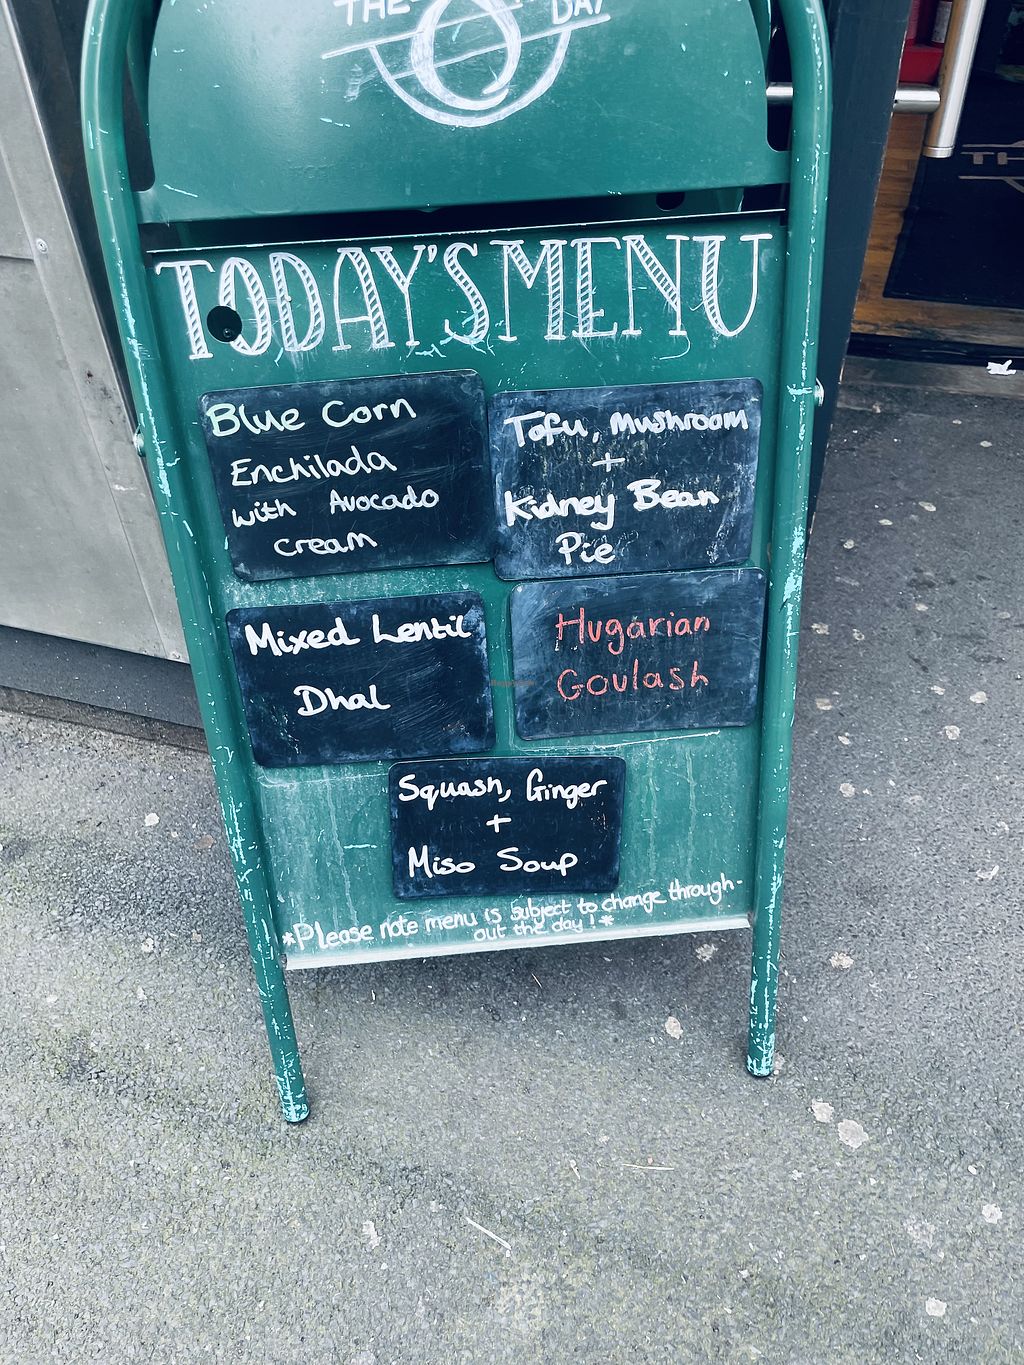 THE
DAY
TODAY'S MENU
Blue Corn
Enchilada
with Avocado
cream
Tofu, Mushroom
+
Kidney Bean
Pie
Mixed Lentil
Dhal
Hugarian
Goulash
Squash, Ginger
+
Miso Soup
*Please note menu is subject to change through-
out the day!*